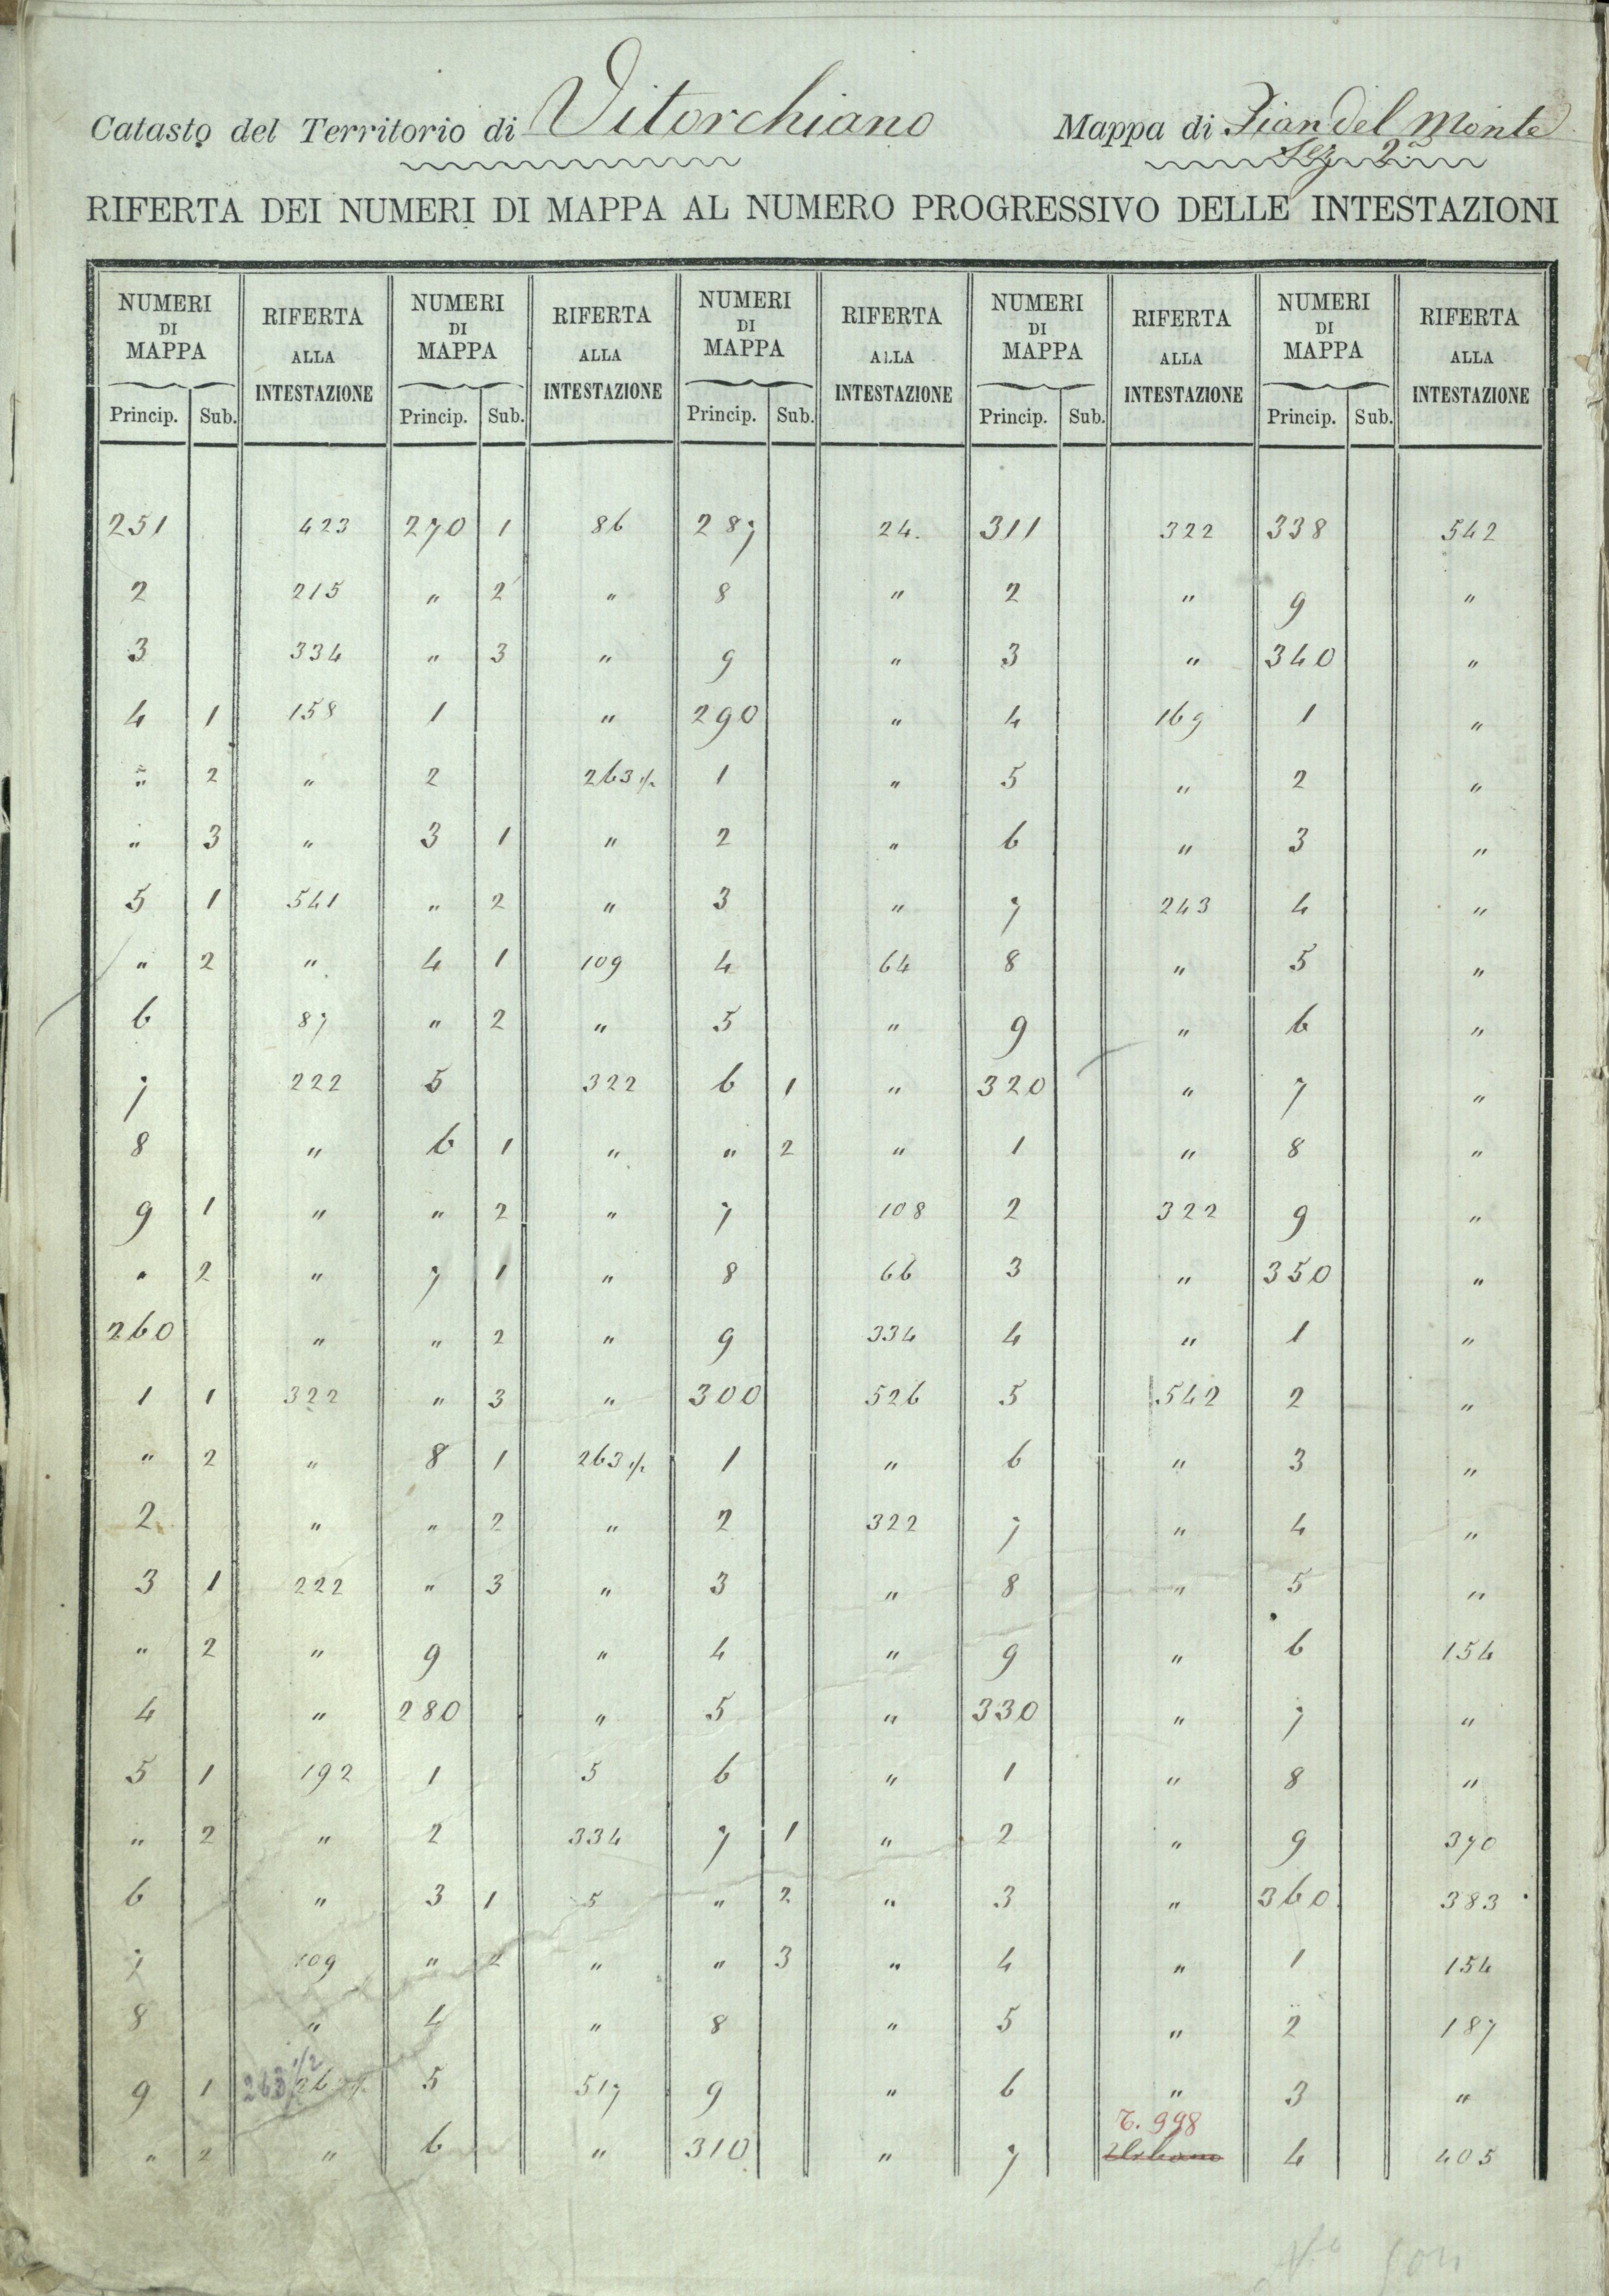 Catasto del Territorio di Vitorchiano Mappa di Pian del Monte
Sez 2.ª
RIFERTA DEI NUMERI DI MAPPA AL NUMERO PROGRESSIVO DELLE INTESTAZIONI
NUMERI DI MAPPA RIFERTA ALLA INTESTAZIONE NUMERI DI MAPPA RIFERTA ALLA INTESTAZIONE NUMERI DI MAPPA RIFERTA ALLA INTESTAZIONE NUMERI DI MAPPA RIFERTA ALLA INTESTAZIONE NUMERI DI MAPPA RIFERTA ALLA INTESTAZIONE
Princip. Sub. Princip. Sub. Princip. Sub. Princip. Sub. Princip. Sub.
251 423 270 1 86 287 24. 311 322 338 542
2 215 " 2 " 8 " 2 " 9 "
3 334 " 3 " 9 " 3 " 340 "
4 1 158 1 " 290 " 4 169 1 "
" 2 " 2 263 ½ 1 " 5 " 2 "
" 3 " 3 1 " 2 " 6 " 3 "
5 1 541 " 2 " 3 " 7 243 4 "
" 2 " 4 1 109 4 64 8 " 5 "
6 87 " 2 " 5 " 9 " 6 "
7 222 5 322 6 1 " 320 " 7 "
8 " 6 1 " " 2 " 1 " 8 "
9 1 " " 2 " 7 108 2 322 9 "
" 2 " 7 1 " 8 66 3 " 350 "
260 " " 2 " 9 334 4 " 1 "
1 1 322 " 3 " 300 526 5 542 2 "
" 2 " 8 1 263 ½ 1 " 6 " 3 "
2 " " 2 " 2 322 7 " 4 "
3 1 222 " 3 " 3 " 8 " 5 "
" 2 " 9 " 4 " 9 " 6 154
4 " 280 " 5 " 330 " 7 "
5 1 192 1 5 6 " 1 " 8 "
" 2 " 2 334 7 1 " 2 " 9 370
6 " 3 1 5 " 2 " 3 " 360 383
7 109 " 2 " " 3 " 4 " 1 154
8 " 4 " 8 " 5 " 2 187
9 1 263 ½ 5 517 9 " 6 " 3 "
T. 998
" 2 " 6 " 310 " 7 Urbano 4 405